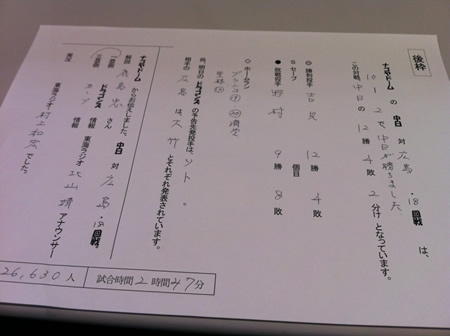 後枠
ナゴヤドーム の 中日 対 広島・18回戦 は、
10-2で中日が勝ちました
この対戦、中日の 12勝 4敗 2分け となっています。
◎ 勝利投手 吉見 12勝 4敗
○ セーブ 個目
● 敗戦投手 野村 9勝 8敗
◇ ホームラン
ブランコ 満塁
堂林
尚、明日の ドラゴンズ の予告先発投手は、ソト 。
相手の 広島 は、大竹 とそれぞれ発表されています。
ナゴヤドーム からお伝えしました、中日 対 広島・18回戦。
解説 鹿島忠 さん
一塁側 ドラゴンズ 情報 東海ラジオ 北山靖 アナウンサー
三塁側 カープ 情報
実況 東海ラジオ 村上和宏でした。
26,630人 試合時間2時間47分